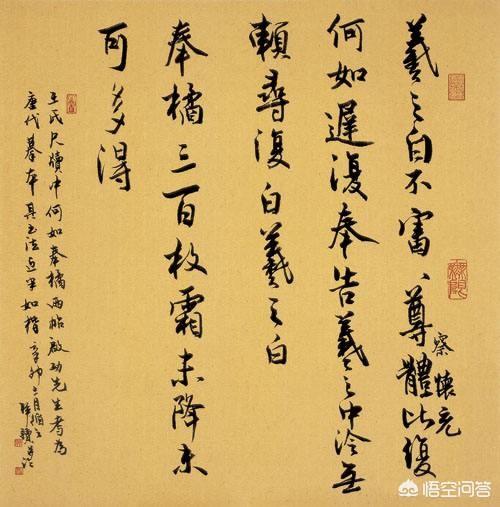 羲之白不審、尊體比復
察懷充
何如遲復奉告羲之中冷無
賴尋復白羲之白
奉橘三百枚霜未降未
可多得
王氏尺牘中何如奉橘兩帖啟功先生考為
唐代摹本其書法近乎如楷辛卯二月
悟空问答